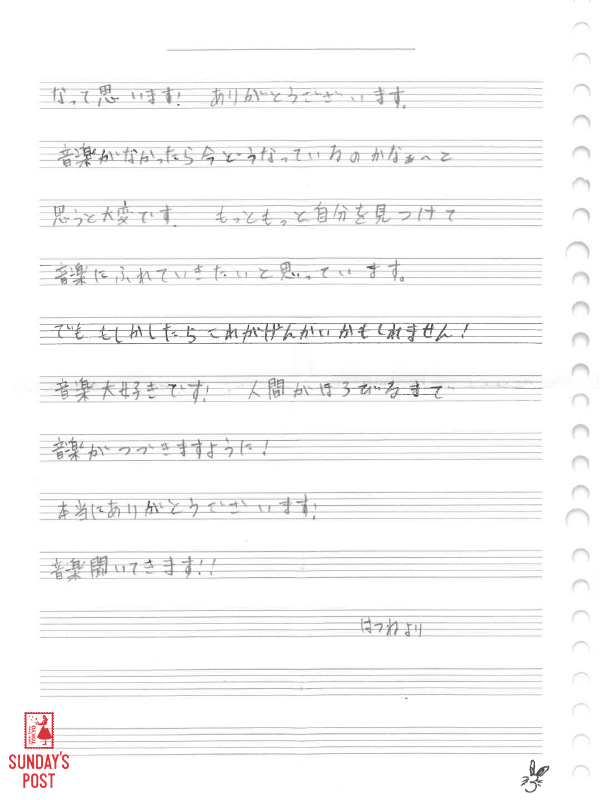 なって思います! ありがとうございます。
音楽がなかったら今どうなっているのかなぁ〜と
思うと大変です。 もっともっと自分を見つけて
音楽にふれていきたいと思っています。
でも もしかしたら これがげんかいかもしれません!
音楽大好きです! 人間がほろびるまで
音楽がつづきますように!
本当にありがとうございます!
音楽聞いてきます!!
はつねより
SUNDAY'S
POST